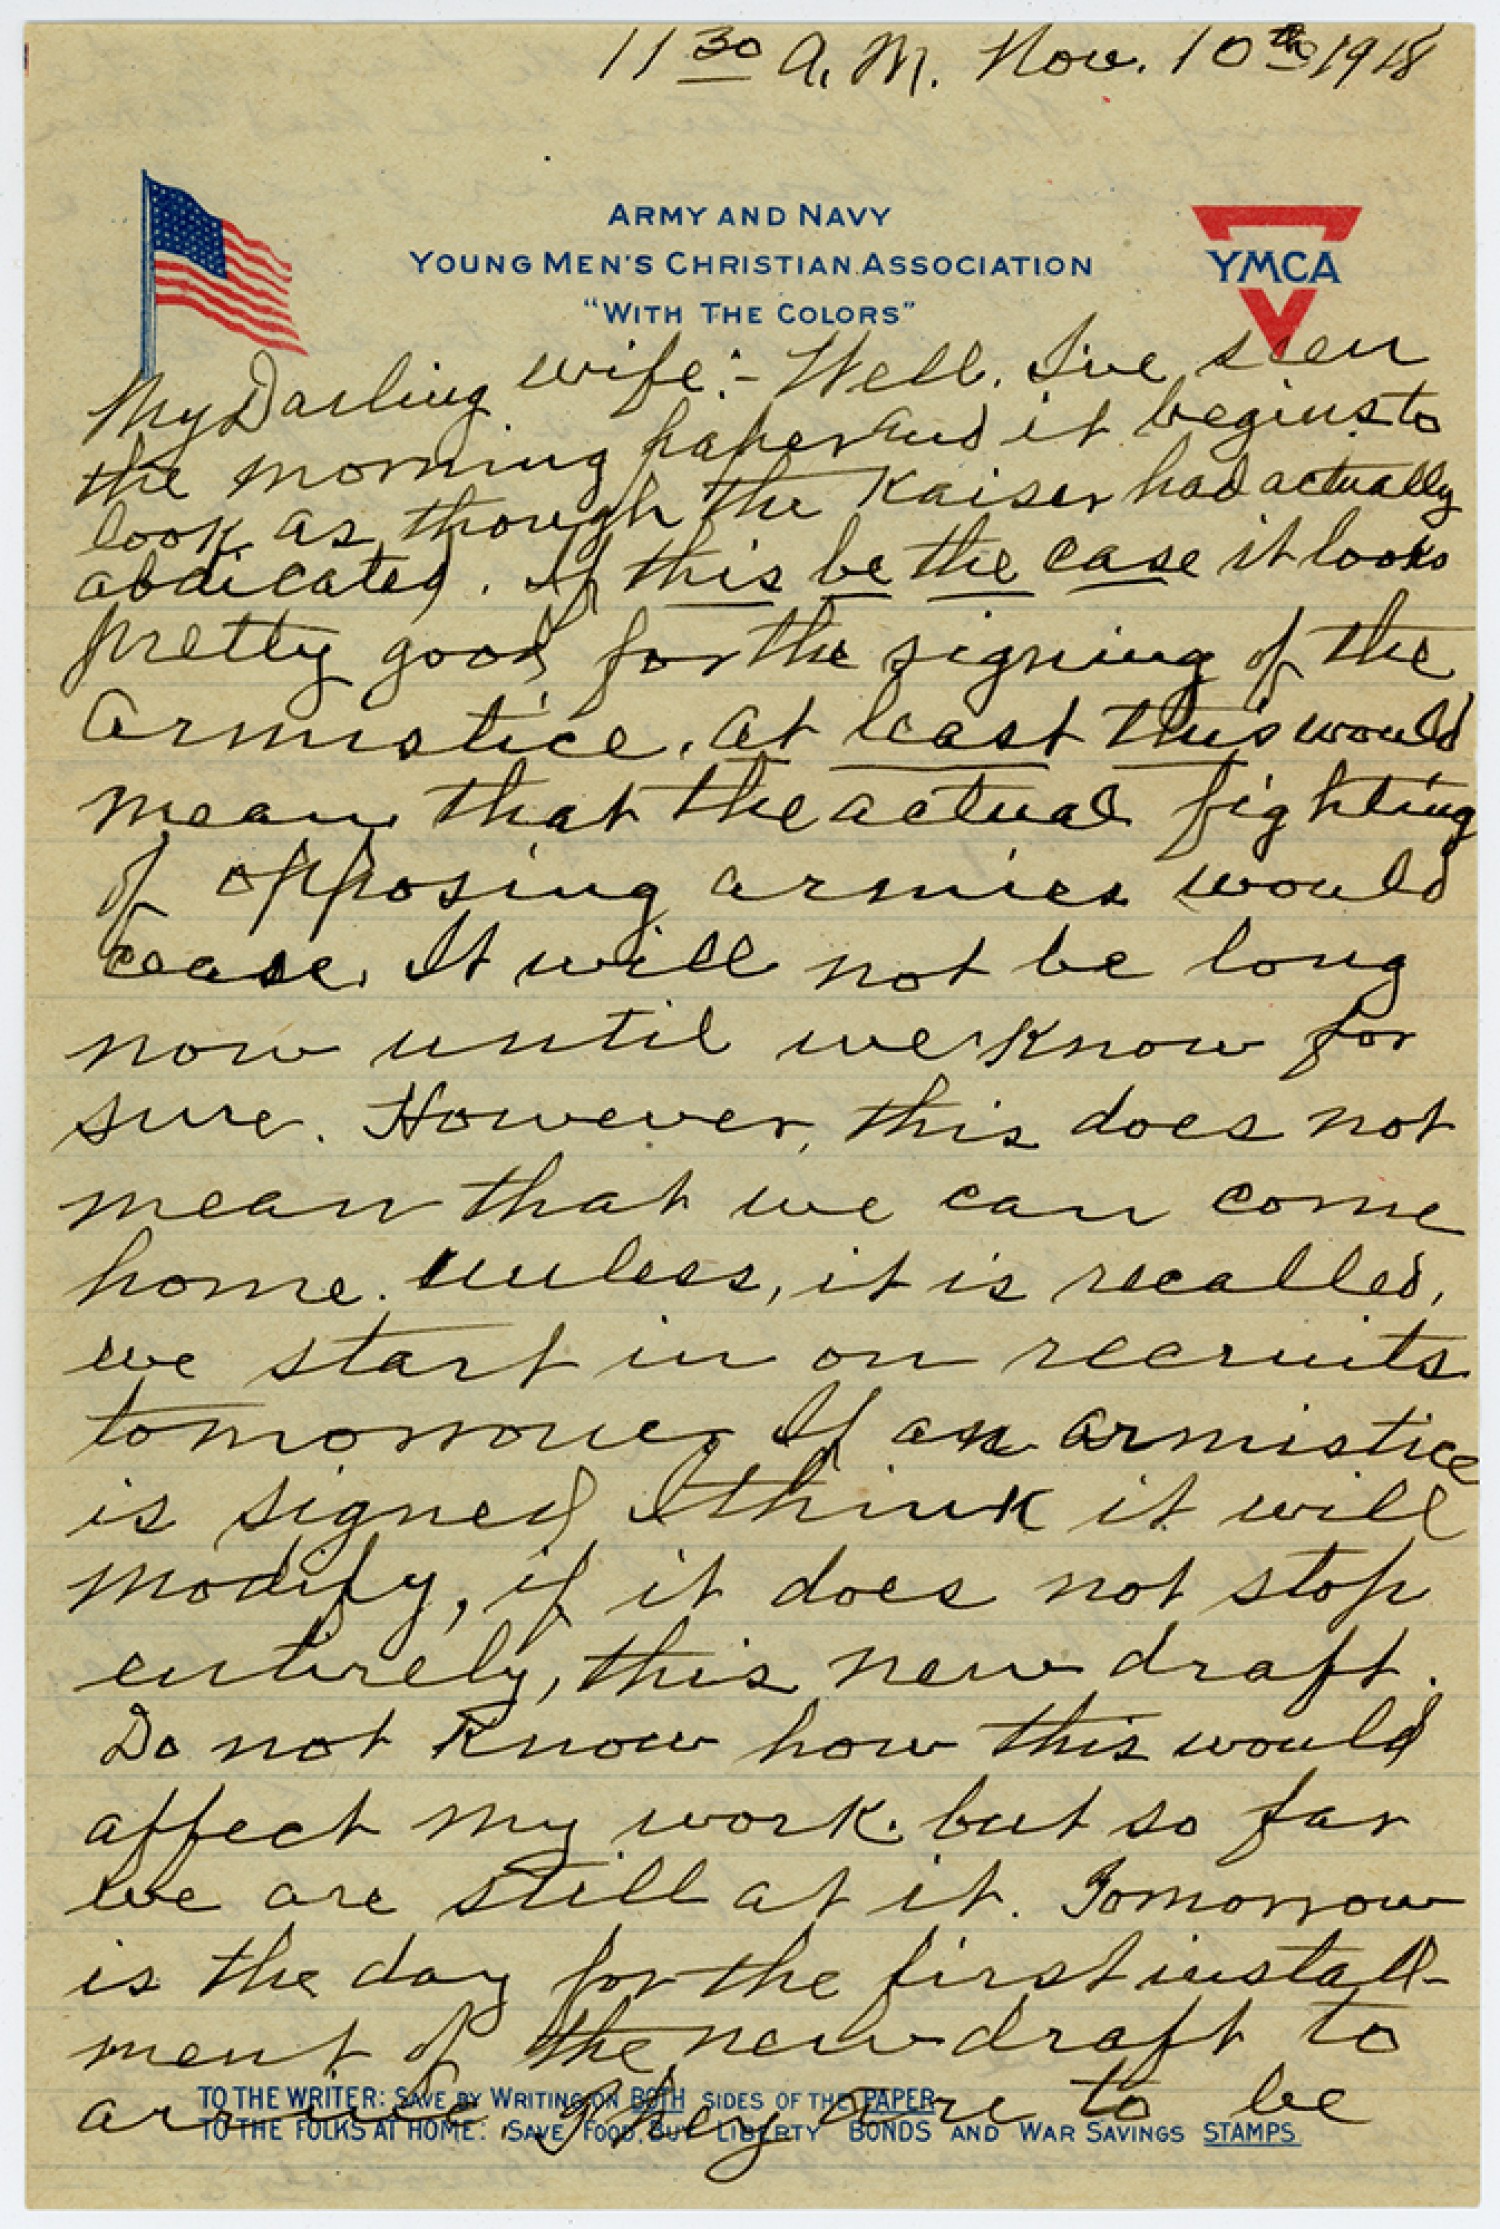 11 30 A.M. Nov. 10th 1918
ARMY AND NAVY
YOUNG MEN'S CHRISTIAN ASSOCIATION
"WITH THE COLORS"
YMCA
My Darling wife:- Well. I've seen
the morning paper and it begins to
look as though the Kaiser had actually
abdicated. If this be the case it looks
pretty good for the signing of the
Armistice. At least this would
mean that the actual fighting
of opposing armies would
cease. It will not be long
now until we know for
sure. However, this does not
mean that we can come
home. Unless, it is recalled,
we start in on recruits
tomorrow. If an armistice
is signed I think it will
modify, if it does not stop
entirely, this new draft.
Do not know how this would
affect my work. but so far
we are still at it. Tomorrow
is the day for the first install-
ment of the new draft to
arrive. They are to be
TO THE WRITER: SAVE BY WRITING ON BOTH SIDES OF THE PAPER
TO THE FOLKS AT HOME: SAVE FOOD, BUY LIBERTY BONDS AND WAR SAVINGS STAMPS